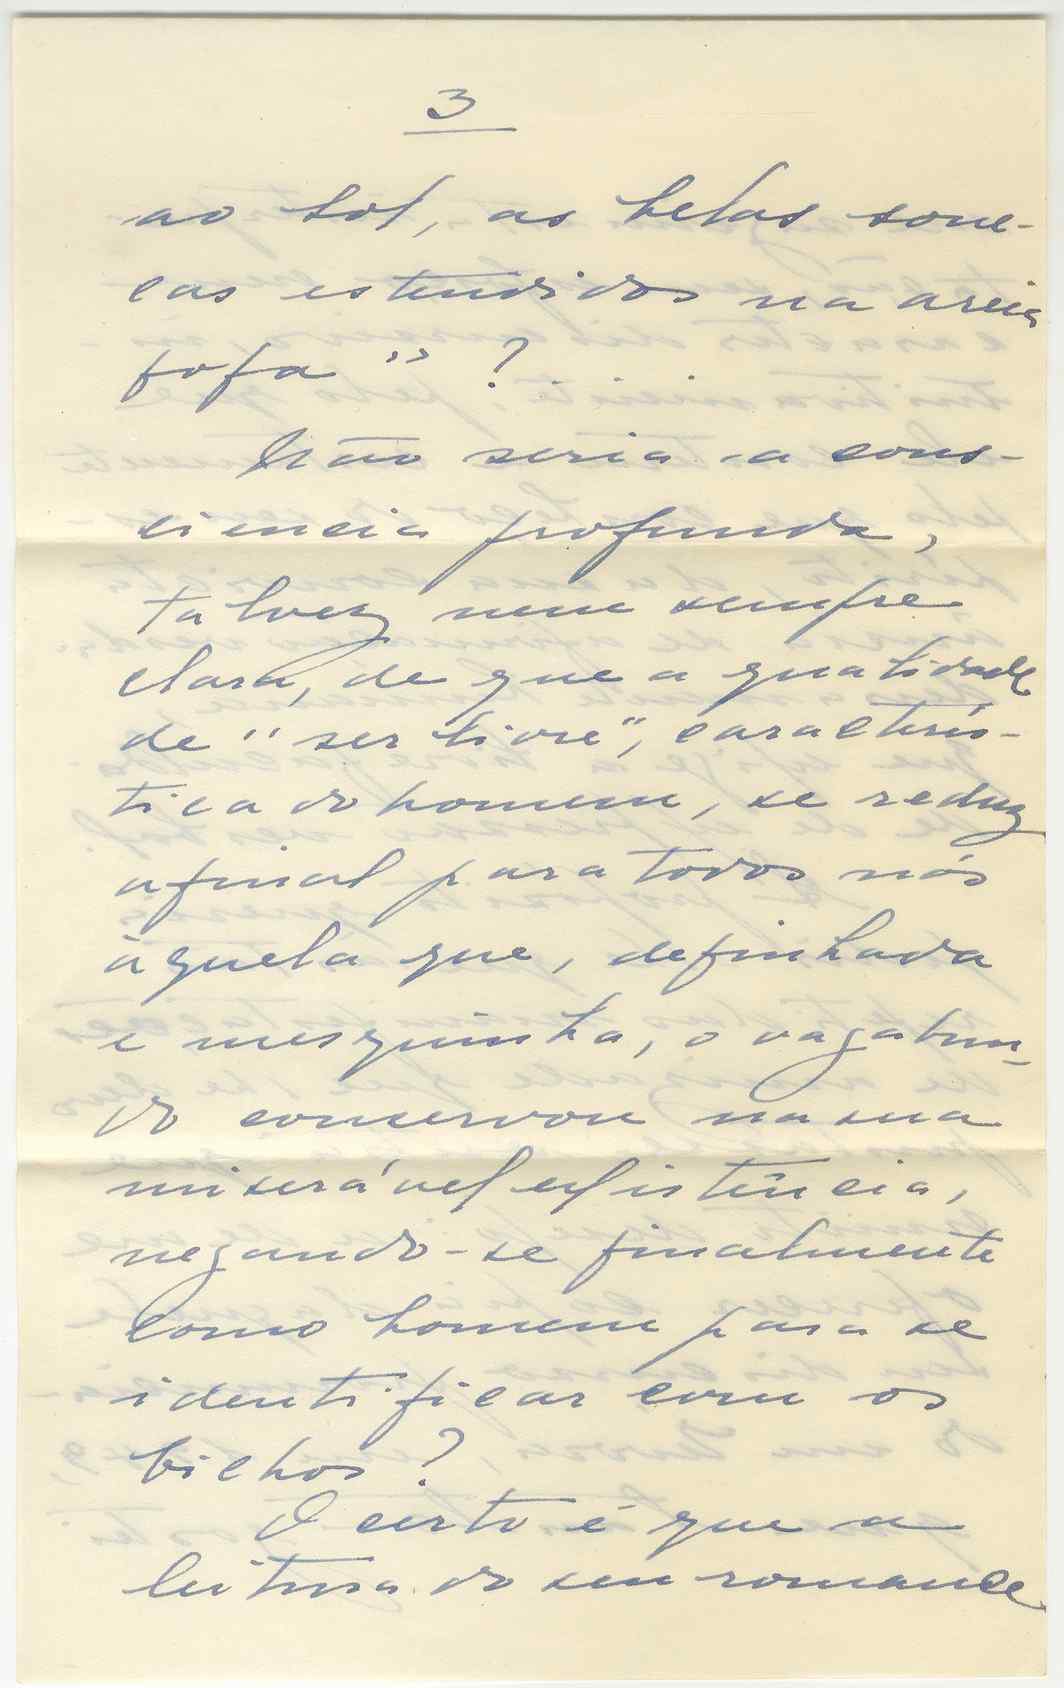 3
ao sol, as belas sone-
cas estendidos na areia
fofa" ?
Não seria a cons-
ciencia profunda,
talvez nem sempre
clara, de que a qualidade
de "ser livre", caracterís-
tica do homem, se reduz
afinal para todos nós
àquela que, definhada
e mesquinha, o vagabun-
do conservou na sua
miserável existência,
negando-se finalmente
como homem para se
identificar com os
bichos?
O certo é que a
leitura do seu romance